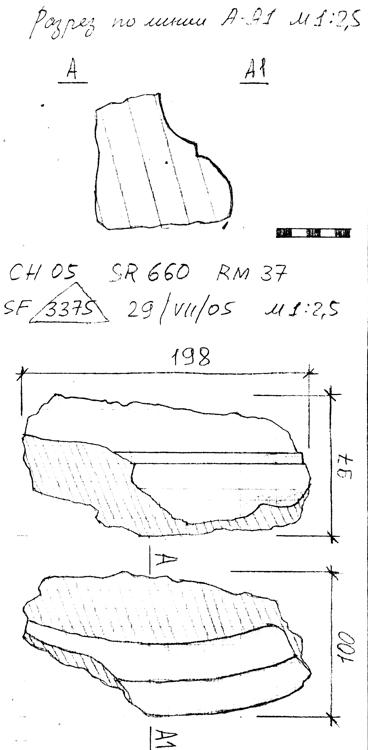 Разрез по линии А-А1 М1:2,5
А А1
CH 05 SR 660 RM 37
SF 3375 29/VII/05 М1:2,5
198
76
А
100
А1